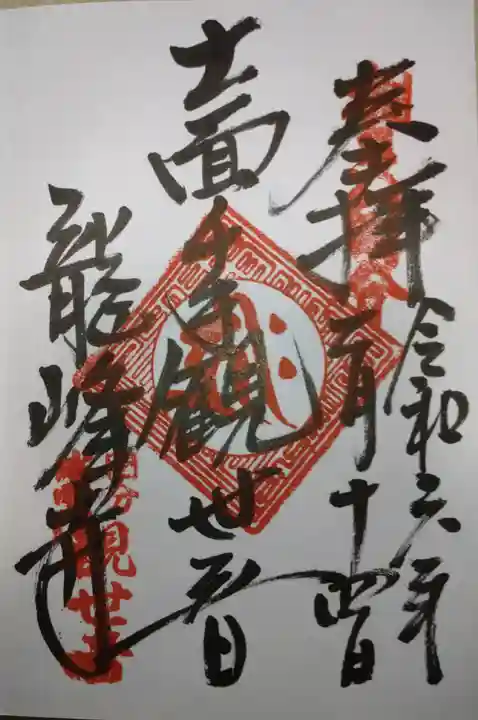 奉拝
令和六年
二月十四日
十一面千手観世音
龍峰寺
観世音